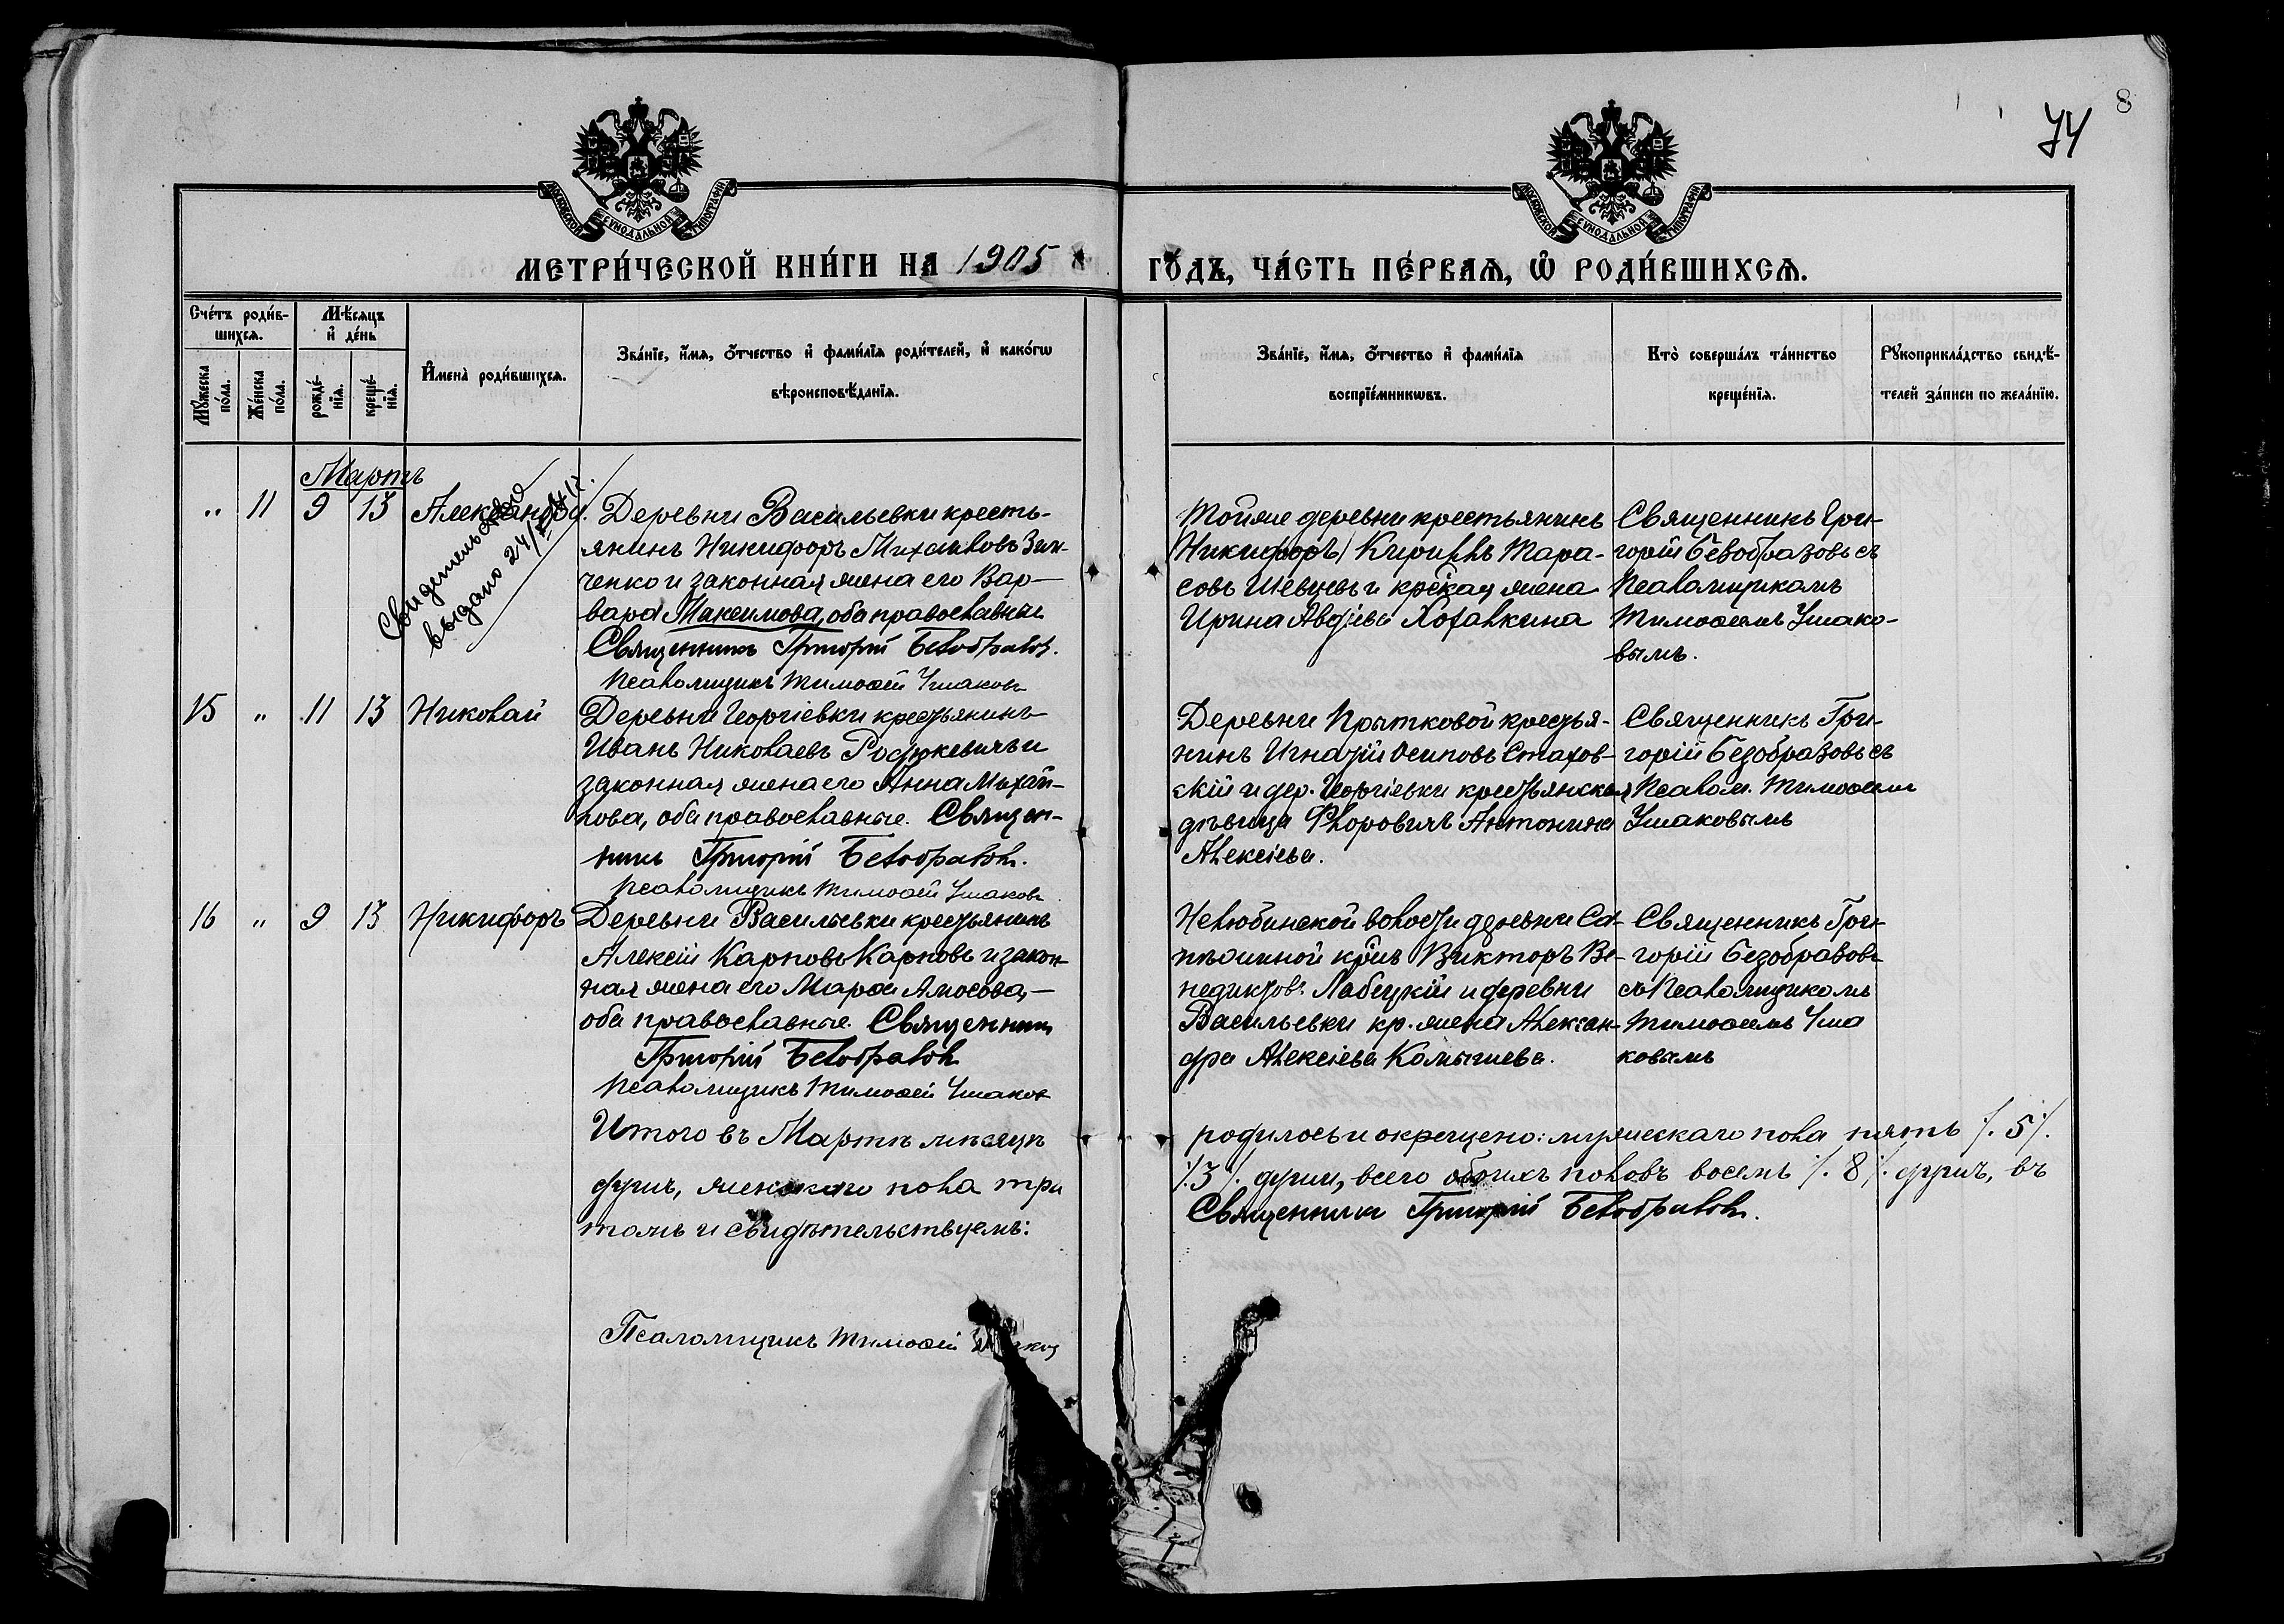 8
74
МОСКОВСКОЙ СѴНОДАЛЬНОЙ ТИПОГРАФІИ
МОСКОВСКОЙ СѴНОДАЛЬНОЙ ТИПОГРАФІИ
МЕТРИ́ЧЕСКОЙ КНИ́ГИ НА 1905
ГО́ДЪ, ЧА́СТЬ ПЕ́РВАѦ, Ѽ РОДИ́ВШИХСѦ.
Сче́тъ роди́в-
шихсѧ.
Мѣ́сяцъ
и҆ де́нь
Мꙋ́жеска
по́ла.
Же́нска
по́ла.
рожде́-
нїѧ.
креще́-
нїѧ.
И҆мена̀ роди́вшихсѧ.
Зва́нїе, и҆́мѧ, ѻ҆́тчество и҆ фами́лїѧ роди́телей, и҆ како́гѡ
вѣроисповѣ́данїѧ.
Зва́нїе, и҆́мѧ, ѻ҆́тчество и҆ фами́лїѧ
воспрїе́мникѡвъ.
Кто̀ соверша́лъ та́инство
креще́нїѧ.
Рꙋкоприкла́дство свидѣ́-
телей за́писи по жела́нїю.
Мартъ
" 11 9 13 Александра.
Свидетельство
выдано 24/
Деревни Васильевки кресть-
янинъ Никифоръ Михаиловъ Зин-
ченко и законная жена его Вар-
вара Максимова, оба православные
Священникъ Григорій Безобразовъ.
Псаломщикъ Тимоѳей Ушаковъ
Тойже деревни крестьянинъ
(Никифоръ) Кириллъ Тара-
совъ Шевцевъ и кр̃ская жена
Ирина Авдіева Хохалкина
Священникъ Гри-
горій Безобразовъ съ
Псаломщикомъ
Тимоѳеемъ Ушако-
вымъ.
15 " 11 13 Николай
Деревни Георгіевки крестьянинъ
Иванъ Николаевъ Росцкевичъ и
законная жена его Анна Михай-
лова, оба православные. Священ-
никъ Григорій Безобразовъ.
Псаломщикъ Тимоѳей Ушаковъ
Деревни Прытковой крестья-
нинъ Игнатій Осиповъ Стахов-
скій и дер. Георгіевки крестьянская
дѣвица Флоровичъ Антонина
Алексіева.
Священникъ Гри-
горій Безобразовъ съ
Псалом. Тимоѳеемъ
Ушаковымъ
16 " 9 13 Никифоръ
Деревни Васильевки крестьянинъ
Алексій Карповъ Карповъ и закон-
ная жена его Марѳа Амосова,—
оба православные. Священникъ
Григорій Безобразовъ
Псаломщикъ Тимоѳей Ушаковъ
Нелюбинской волости деревни
кр̃нъ Викторъ Ве-
недиктовъ Лабецкій и деревни
Васильевки кр. жена Алексан-
дра Алексіева Камышева.
Священникъ Гри-
горій Безобразовъ
съ Псаломщикомъ
Тимоѳеемъ Уша
ковымъ
Итого въ Мартѣ мѣсяцѣ
родилось и окрещено: мужескаго пола пять /. 5 /.
душъ, женскаго пола три
/. 3 /. души, всего обоихъ половъ восемь /. 8 /. душъ, въ
томъ и свидѣтельствуемъ:
Священникъ Григорій Безобразовъ.
Псаломщикъ Тимоѳей Ушаковъ